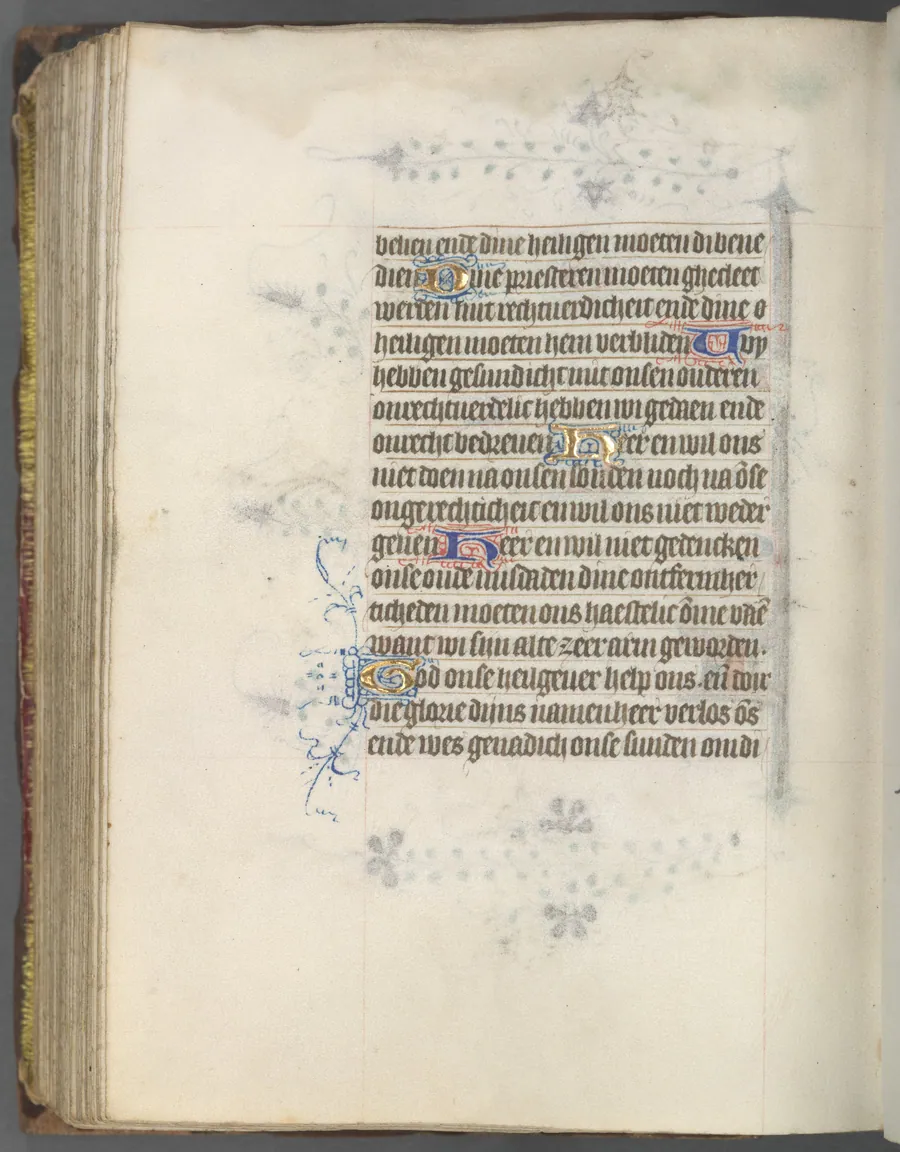 behen ende dine heiligen moeten di bene
dien Dine priesteren moeten ghecleet
werden mit rechtuerdicheit ende dine o
heiligen moeten hem verbliden Wy
hebben gesundicht mit onsen ouderen
onrechtuerdelic hebben wi gedaen ende
onrecht bedreuen Heer en wil ons
niet doen na onsen sonden noch na ōse
ongerechticheit en wil ons niet weder
geuen Heer en wil niet gedencken
onse oude misdaden dine ontfermher
ticheden moeten ons haestelic ōme vaē
want wi sijn alte zeer arm geworden.
God onse heilgeuer help ons. eñ doir
die glorie dijns namen heer verlos ōs
ende wes genadich onse sunden om di